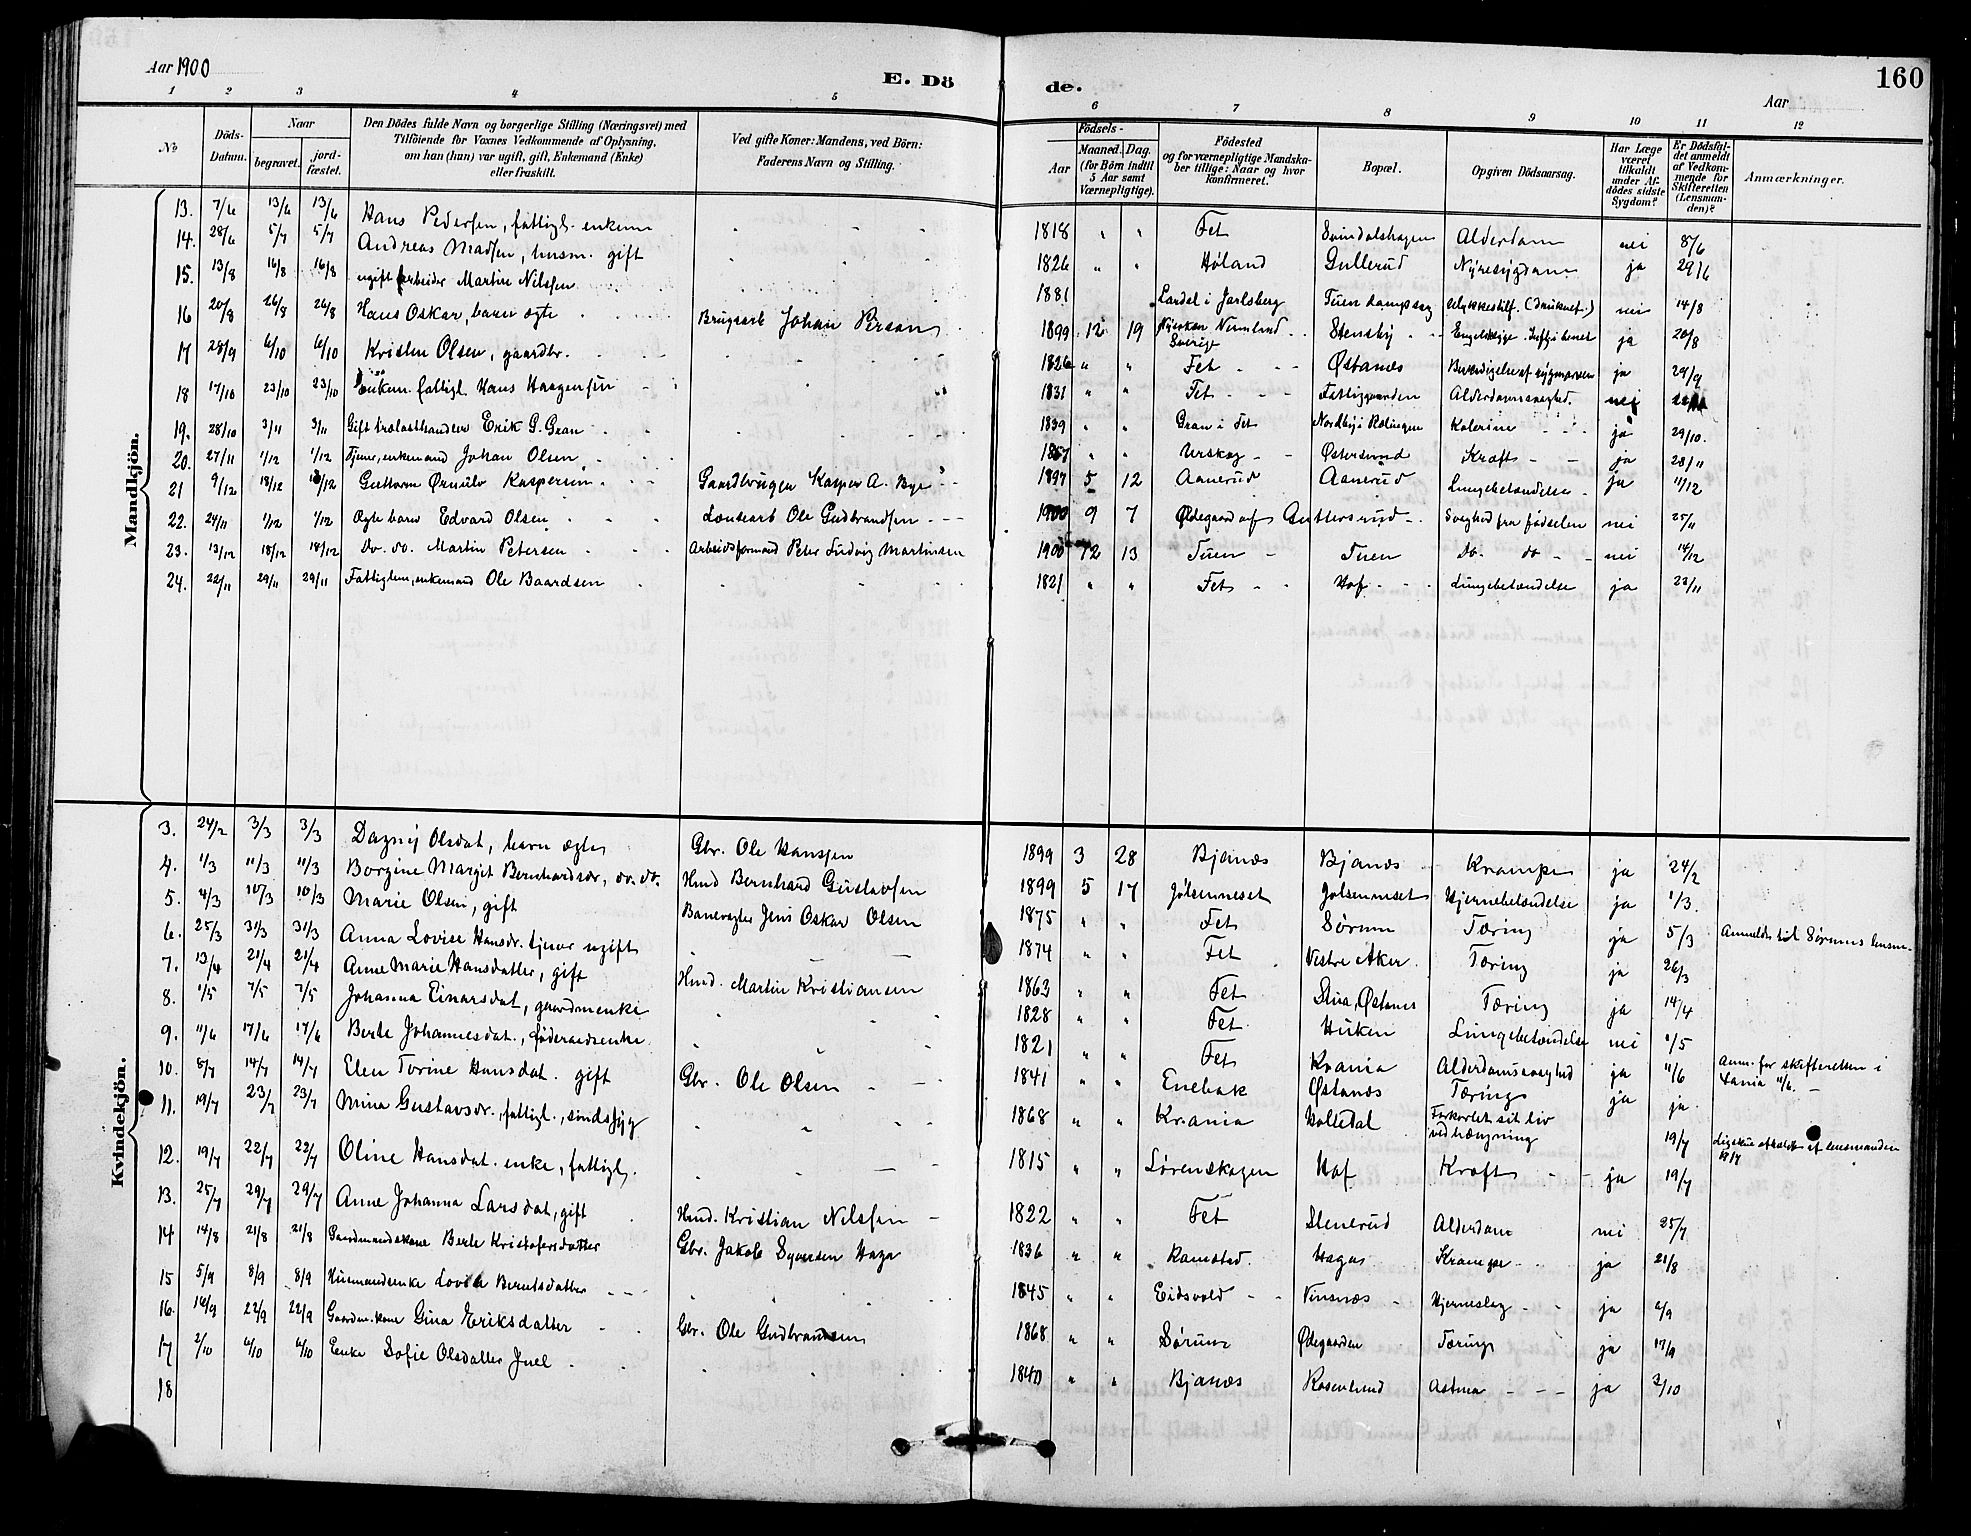 Aar 1900
E. Dö
de.
Aar
160
1 2 3 4 5 6 7 8 9 10 11 12
No
Döds-Datum.
Naar
begravet.
jord-fæstet.
Den Dödes fulde Navn og borgerlige Stilling (Næringsvei) med
Tilföiende for Voxnes Vedkommende af Oplysning,
om han (hun) var ugift, gift, Enkemand (Enke)
eller fraskilt.
Ved gifte Koner: Mandens, ved Börn:
Faderens Navn og Stilling.
Födsels-
Aar
Maaned. Dag.
(for Börn indtil
5 Aar samt
Værnepligtige).
Födested
og for værnepligtige Mandska-
ber tillige: Naar og hvor
konfirmeret.
Bopæl.
Opgiven Dödsaarsag.
Har Læge
været
tilkaldt
under Af-
dödes sidste
Sygdom?
Er Dödsfal-
det anmeldt
af Vedkom-
mende for
Skifteretten
(Lensman-
den)?
Anmærkninger.
Mandkjön.
13. 7/6 13/6 13/6 Hans Pedersen, fattigl. enkem 1818 " " Fet Svindalshagen Alderdom nei 8/6
14. 28/6 5/7 5/7 Andreas Madsen, husm. gift 1826 " " Høland Gullerud Nyresygdom ja 29/6
15. 13/8 16/8 16/8 ugift arbeider Martin Nilsen 1881 i Jarlsberg Tuen Ulykkestilf. (druknet.) nei 14/8
16 20/8 26/8 26/8 Hans Oskar, barn ægte Brugsarb Johan Person 1899 12 19 Sverige Stensby Engelsksyge. ja 20/8
17 28/9 6/10 6/10 Kristen Olsen, gaardbr. 1826 " " Fet Østanæs ja 29/9
18 17/10 23/10 23/10 enkem. fattigl. Hans Haagensen 1831 " " Fet Fattiggaarden Alderdomssvaghed. nei
19. 28/10 3/11 3/11 Gift trælasthandler Erik G. Gran 1839 " " Gran i Fet Nordby i Rælingen Kolerine ja 29/10.
20. 27/11 1/12 1/12 Tjener, enkemand Johan Olsen 1857 " " Urskog Østersund Kræft ja 28/11
21 9/12 18/12 18/12 Guttorm Ørnulv Kaspersen Gaardbruger Kasper A. Bye 1897 5 12 Aanerud Aanerud Lungebetændelse ja 11/12
22. 24/11 1/12 1/12 Ægte barn Edvard Olsen Ole Gudbrandsen 1900 9 7 Ødegaard af Guttersrud Svaghed fra fødselen nei 25/11
23. 13/12 18/12 18/12 Do. do. Martin Petersen Arbeidsformand Peter Ludvig Martinsen 1900 12 13 Tuen Tuen do. do nei 14/12
24. 22/11 29/11 29/11 Fattiglem, enkemand Ole Baardsen 1821 " " Fet Hof Lungebetændelse ja 23/11
Kvindekjön.
3. 24/2 3/3 3/3 Dagny Olsdat, barn ægte Gbr. Ole Hansen 1899 3 28 Bjanæs Bjanæs Krampe ja 24/2
4. 1/3 11/3 11/3 Borgine Margit Bernhardsdr, do. do. Hmd Bernhard Gustavsen 1899 5 17 Jølsenneset Jølsenneset Hjernebetændelse ja 1/3.
5. 4/3 10/3 10/3 Marie Olsen, gift Banevogter Jens Oskar Olsen 1875 " " Fet Sørum Tæring ja 5/3 Anmeldt til Sørums lensm.
6. 25/3 31/3 31/3 Anna Lovise Hansdr. tjener ugift 1874 " " Fet Vestre Aker Tæring ja 26/3
7. 13/4 21/4 21/4 Anne Marie Hansdatter, gift Hmd. Martin Kristiansen 1863 " " Fet Østanes Tæring ja 14/4
8. 1/5 7/5 7/5 Johanna Einarsdat, gaardmenke 1828 " " Fet. Huken Lungebetændelse nei 1/5
9. 11/6 17/6 17/6 Berte Johannesdat., føderaadsenke 1821 " " Fet Krania Alderdomssvaghed ja 11/6 Anm. for skifteretten i Xania 11/6.
10. 8/7 14/7 14/7 Elen Torine Hansdat. gift Gbr. Ole Olsen 1841 " " Enebak Østanæs Tæring ja ja
11. 19/7 23/7 23/7 Mina Gustavsdr., fattigl., sindssyg 1868 " " Krania Holtedal Forkortet sit liv ved hængning 19/7 af lensmanden 19/7
12. 19/7 22/7 22/7 Oline Hansdat. enke, fattigl. 1815 " " Lørenskogen Hof Kræft ja 19/7
13. 25/7 29/7 29/7 Anne Johanna Larsdat, gift Hmd. Kristian Nilsen 1822 " " Fet Stenerud Alderdom nei 25/7
14 14/8 21/8 21/8 Gaardmandskone Berte Kristofersdatter Gbr. Jakob Syversen Haga 1836 " " Ramstad. Hagas Krampe ja 21/8
15 5/9 8/9 8/9 Husmandsenke Lovise Berntsdatter 1845 " " Eidsvold Vinsnæs Hjerneslag ja 6/9
16. 16/9 22/9 22/9 Gaardm.kone Gina Eriksdatter Gbr. Ole Gudbrandsen 1868 " " Sørum Ødegaarden Tæring ja 17/9
17 2/10 6/10 6/10 Enke Sofie Olsdatter Juel 1840 " " Bjanæs Rosenlund Astma ja 2/10
18